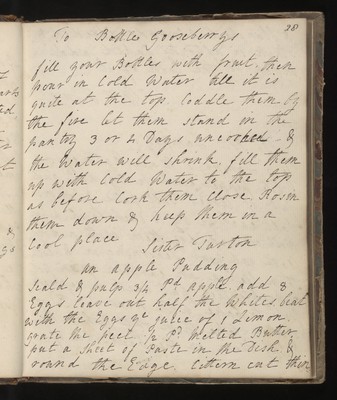 28
To Bottle Gooseberrys
fill your Bottles with fruit, then
pour in Cold Water till it is
quite at the top. Coddle them by
the fire let them stand in the
pantry 3 or 4 Days uncorked &
the Water will shrink, fill them
up with Cold Water to the top
as before Cork them Close Rosin
them down & keep them in a
Cool place
Sister Turton
an apple Pudding
Scald & pulp 3/4 Pd apple, add 8
Eggs leave out half the whites, beat
with the Eggs ye juice of 1 Lemon,
grate the peel 1/2 Pd Melted Butter
put a Sheet of Paste in the Dish, &
round the Edge. Cittern cut thin